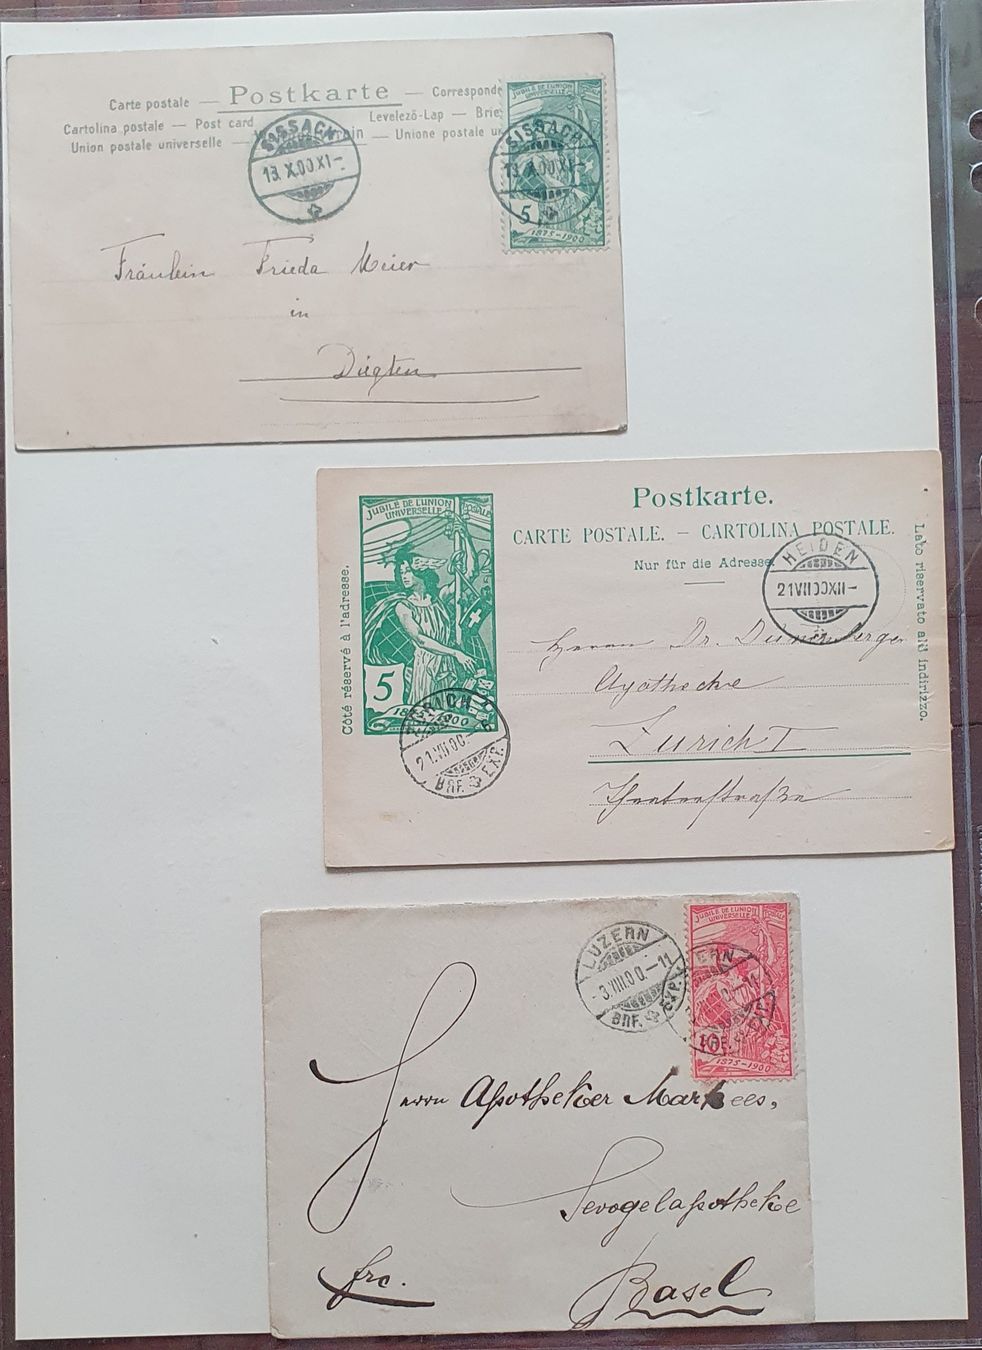 Carte postale — Postkarte — Corresponde
Cartolina postale — Post card Levelező-Lap — Brie
Union postale universelle — — Unione postale un
SISSACH
13.X.00.XI-
SISSACH
13.X.00.XI-
JUBILÉ DE L'UNION
UNIVERSELLE
5
1875-1900
Fräulein Frieda Meier
in
Diegten
JUBILE DE L'UNION POSTALE
UNIVERSELLE
5
1900
Côté réservé à l'adresse.
Postkarte.
CARTE POSTALE. – CARTOLINA POSTALE.
Nur für die Adresse.
Lato riservato all indirizzo.
HEIDEN
21VII00XII-
21.VII.00.
BRF. EXP.
Herrn Dr.
Apotheke
Zürich I
LUZERN
-3.VIII.00.-11
BRF. EXP.
JUBILE DE L'UNION POSTALE
UNIVERSELLE
10
1875-1900
Herrn Apotheker Markees,
Sevogelapotheke
frc.
Basel